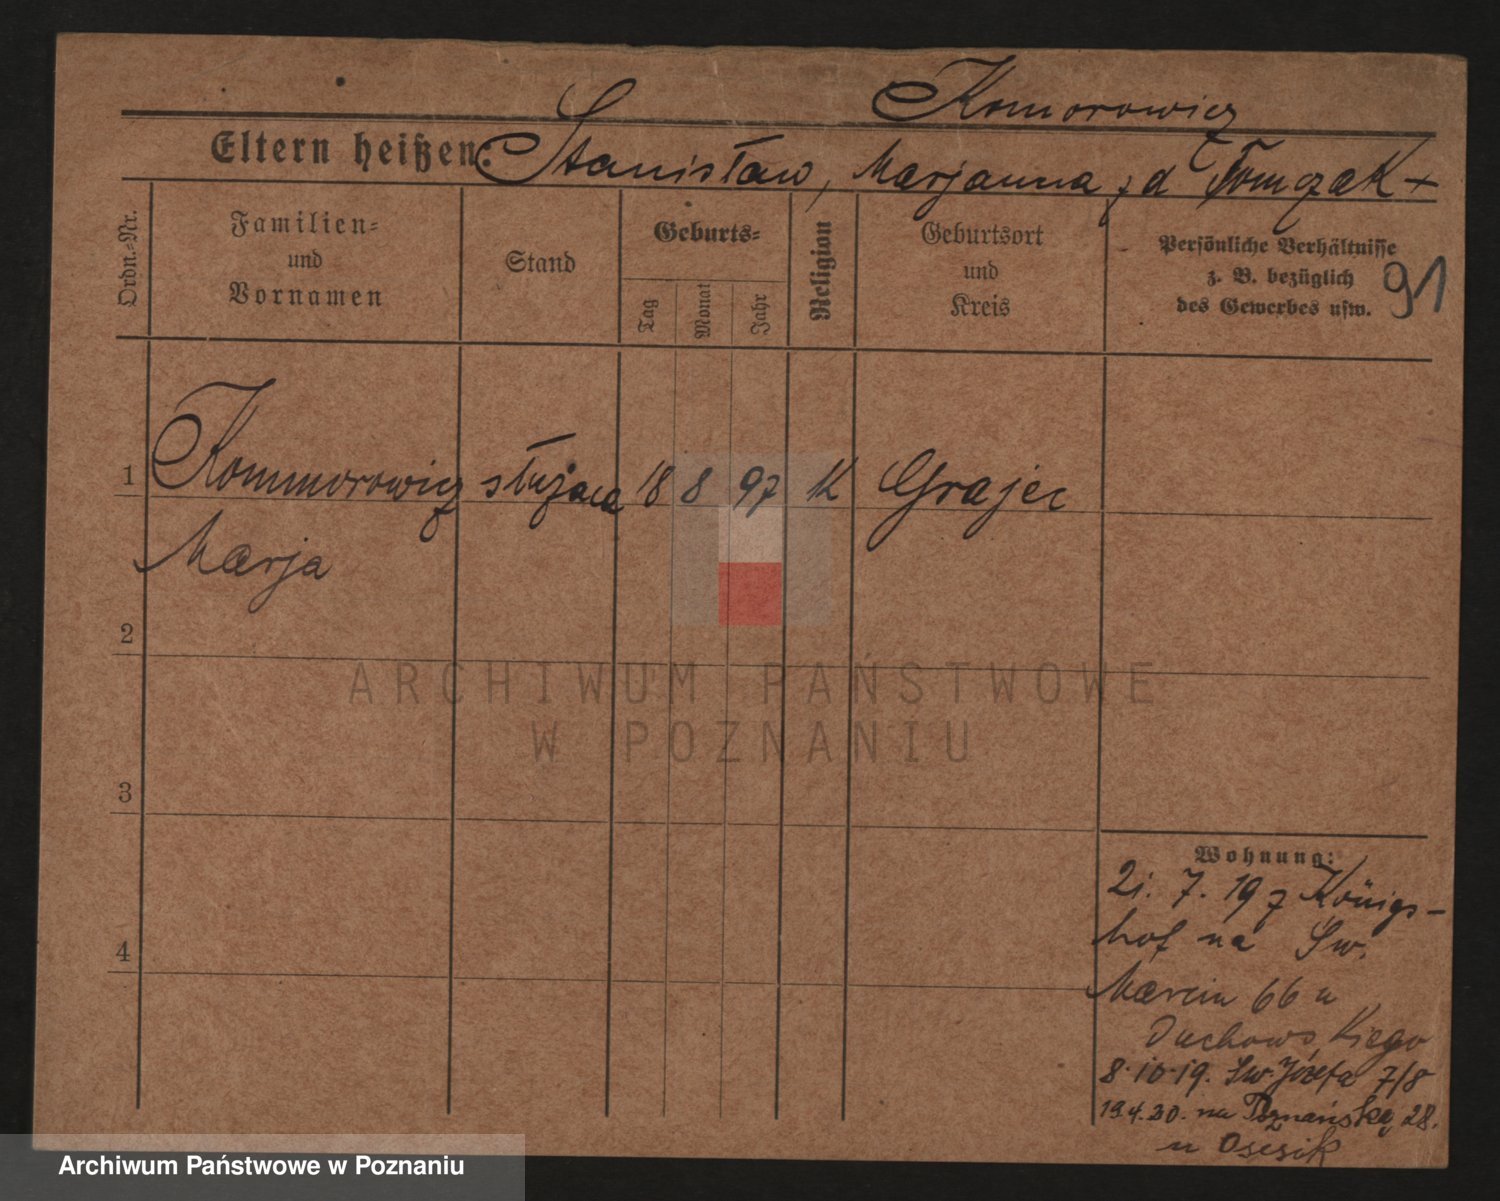 Komorowicz
Eltern heißen: Stanisław, Marjanna z d Tomczak +
Ordn.-Nr.
Familien- und Vornamen
Stand
Geburts-
Tag
Monat
Jahr
Religion
Geburtsort und Kreis
Persönliche Verhältnisse
z. B. bezüglich
des Gewerbes usw.
91
1 Kommorowicz służąca 18 8 97 K Grajec
Marja
2
3
4
Wohnung:
21. 7. 19 z Königs-
hof na Św.
Marcin 66 u
Duchowskiego
8.10.19. Św. Józefa 7/8
19.4.30. na Poznańską 28.
u
ARCHIWUM PAŃSTWOWE
W POZNANIU
Archiwum Państwowe w Poznaniu